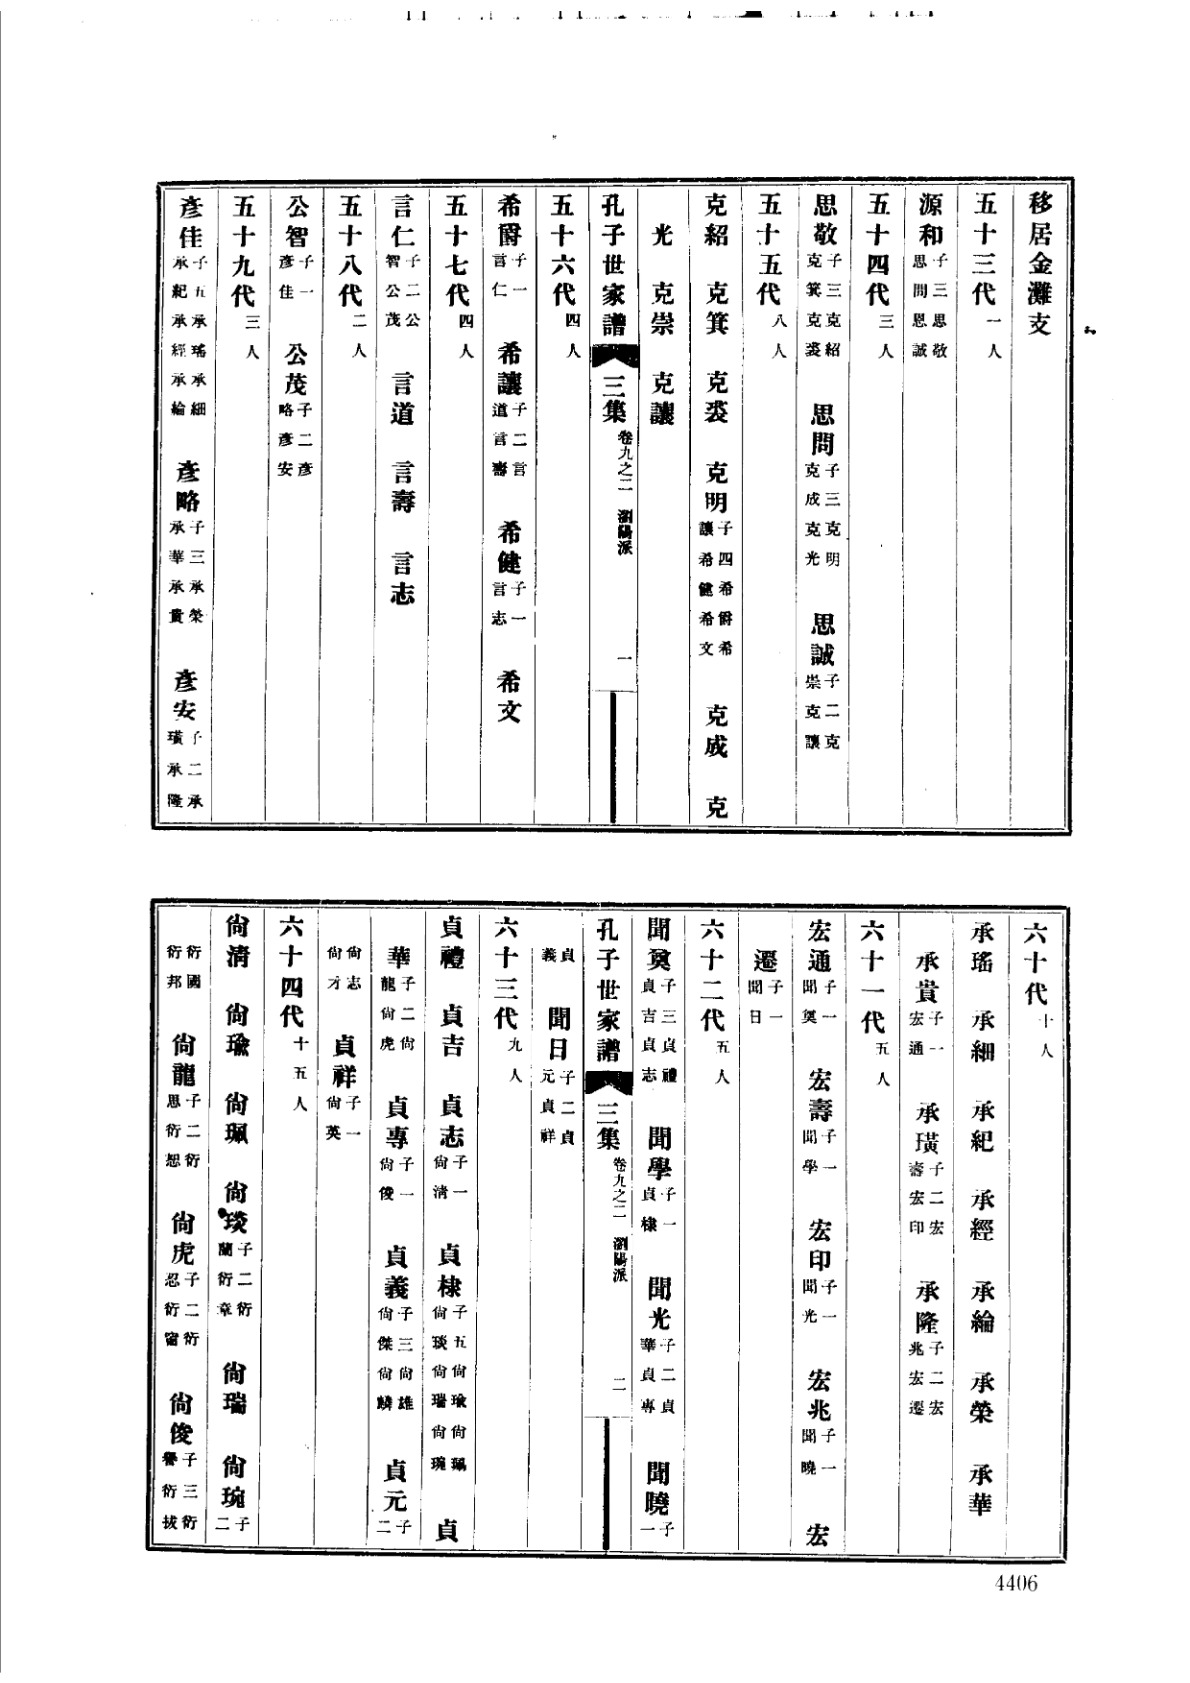 移居金灘支
五十三代 一人
源和 子三思敬思問思誠
五十四代 三人
思敬 子三克紹克箕克裘 思問 子三克明克成克光 思誠 子二克崇克讓
五十五代 八人
克紹 克箕 克裘 克明 子四希爵希讓希健希文 克成 克
光 克崇 克讓
孔子世家譜 三集 卷九之二 瀏陽派 一
五十六代 四人
希爵 子一言仁 希讓 子二言道言壽 希健 子一言志 希文
五十七代 四人
言仁 子二公智公茂 言道 言壽 言志
五十八代 二人
公智 子一彥佳 公茂 子二彥略彥安
五十九代 三人
彥佳 子五承瑤承細承紀承經承綸 彥略 子三承榮承華承貴 彥安 子二承璜承隆
六十代 十人
承瑤 承細 承紀 承經 承綸 承榮 承華
承貴 子一宏通 承璜 子二宏壽宏印 承隆 子二宏兆宏遷
六十一代 五人
宏通 子一聞奠 宏壽 子一聞學 宏印 子一聞光 宏兆 子一聞曉 宏
遷 子一聞日
六十二代 五人
聞奠 子三貞禮貞吉貞志 聞學 子一貞棣 聞光 子二貞華貞專 聞曉 子一
貞義 聞日 子二貞元貞祥
孔子世家譜 三集 卷九之二 瀏陽派 二
六十三代 九人
貞禮 貞吉 貞志 子一尙清 貞棣 子五尙瑜尙珮尙琰尙瑞尙琬 貞
華 子二尙龍尙虎 貞專 子一尙俊 貞義 子三尙雄尙傑尙麟 貞元 子二
尙志尙才 貞祥 子一尙英
六十四代 十五人
尙清 尙瑜 尙珮 尙琰 子二衍蘭衍章 尙瑞 尙琬 子二
衍國衍邦 尙龍 子二衍思衍恕 尙虎 子二衍忍衍甯 尙俊 子三衍譽衍拔
4406